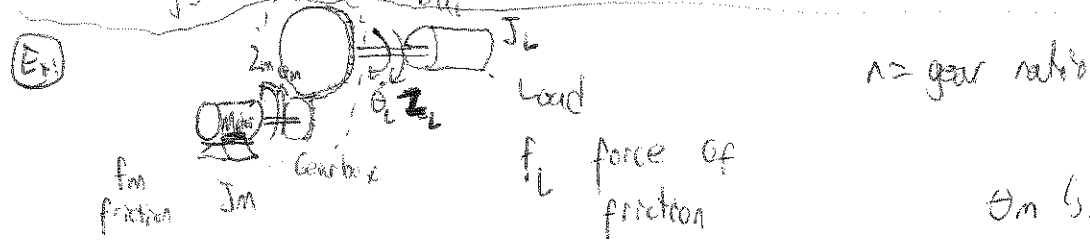 Ex:
J_L
Load
n = gear ratio
τm θm
θL τL
Motor
Gearbox
fm
friction
Jm
fL force of
friction
θm